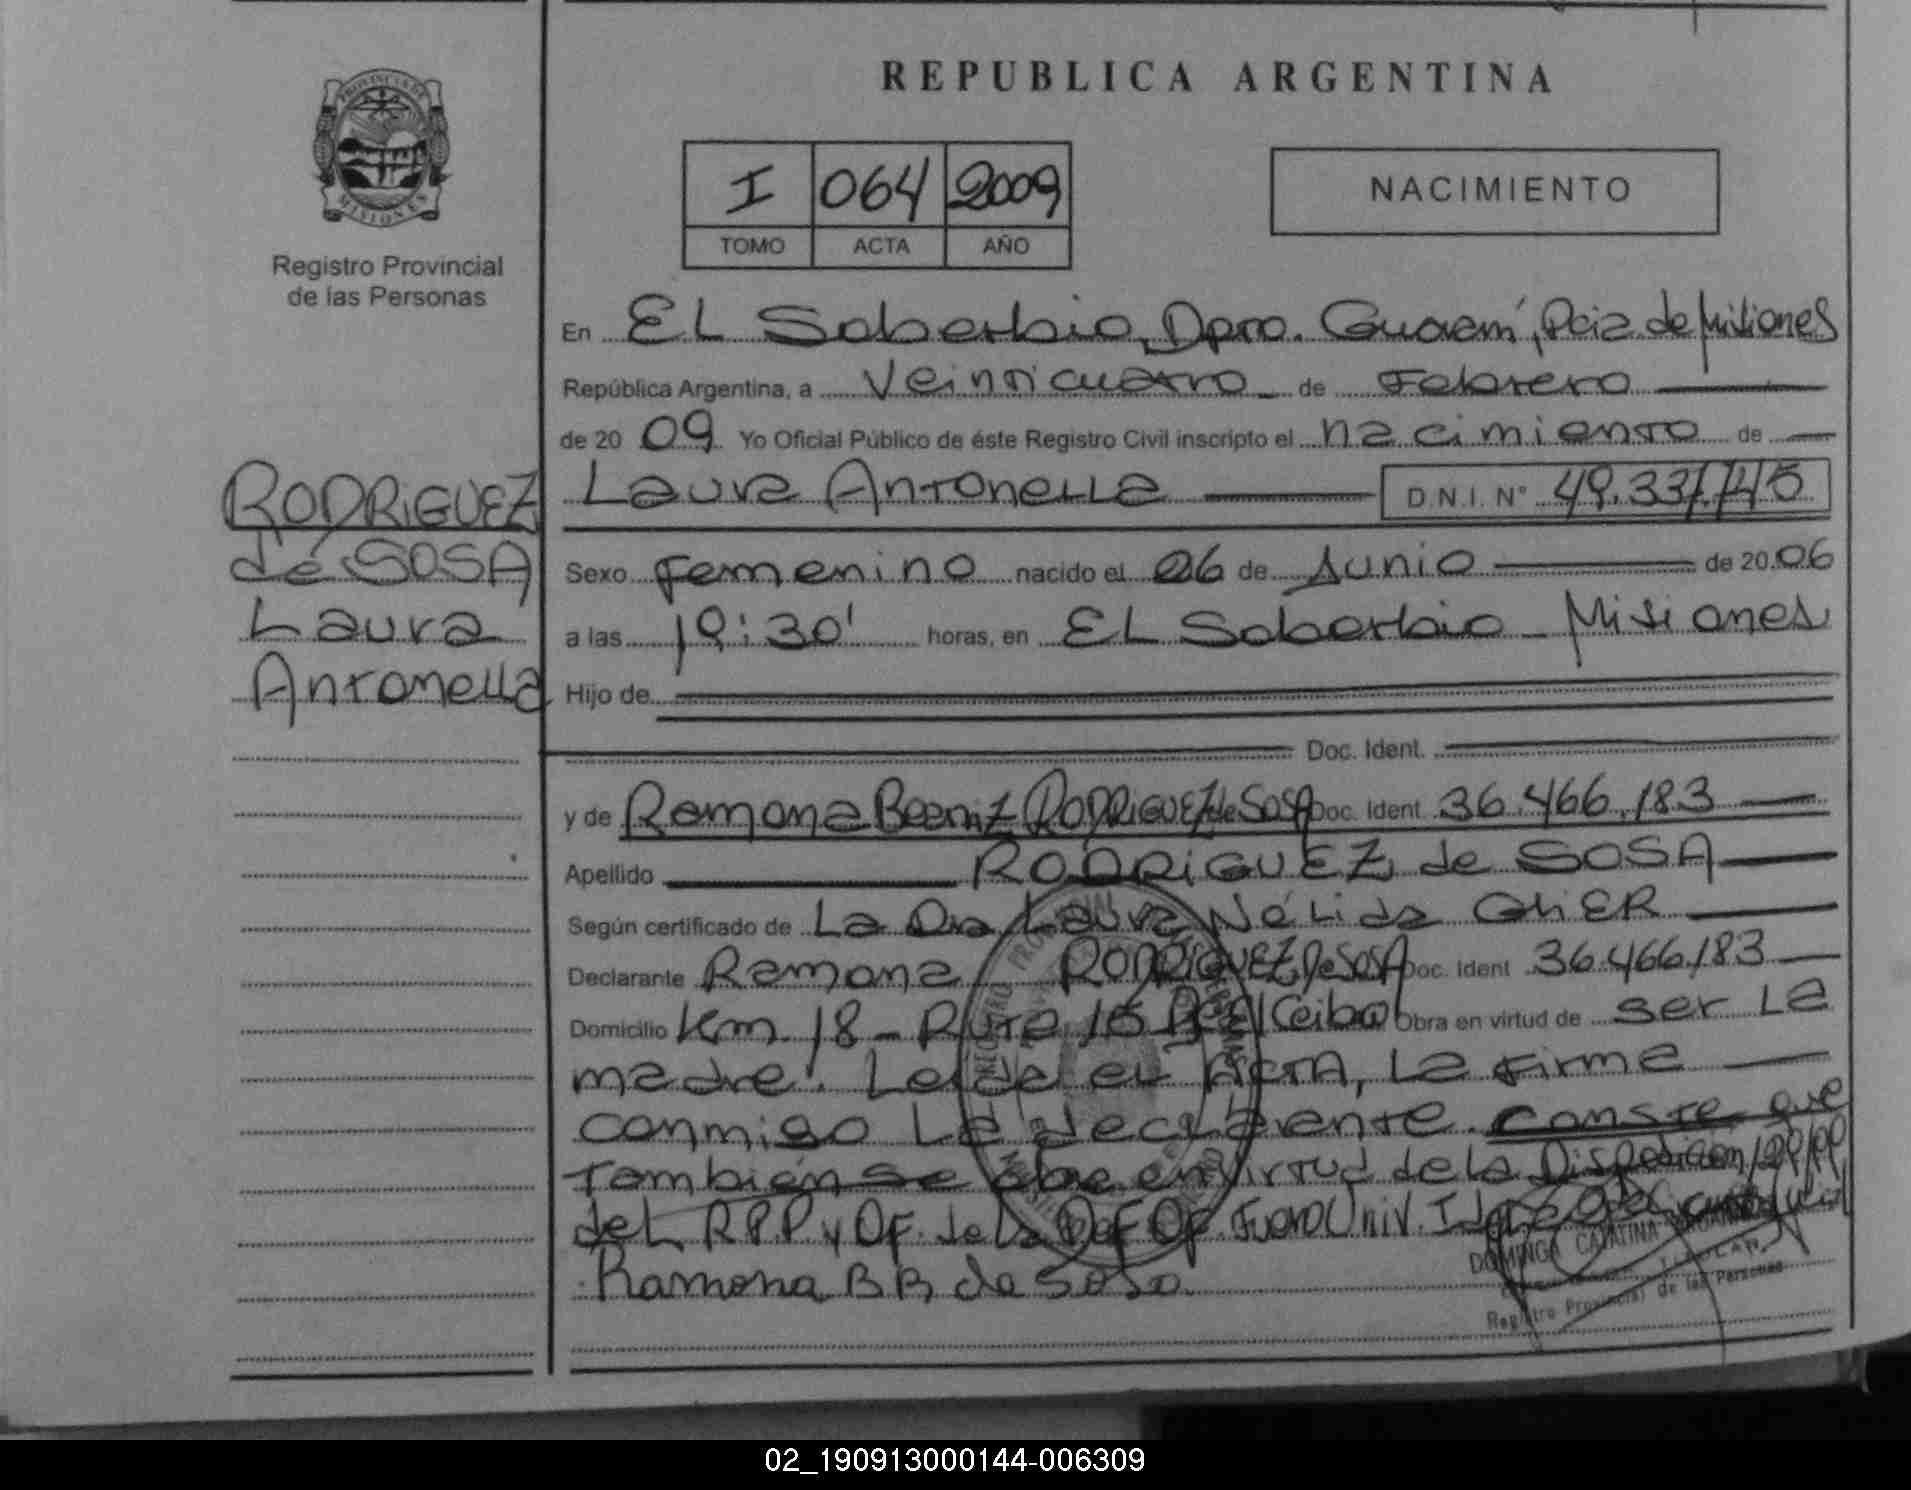 REPUBLICA ARGENTINA
PROVINCIA DE
MISIONES
Registro Provincial
de las Personas
I 064 2009
TOMO ACTA AÑO
NACIMIENTO
En EL Soberbio, Dpto. Guaraní, Pcia. de Misiones
República Argentina, a Veinticuatro de Febrero
de 20 09 Yo Oficial Público de éste Registro Civil inscripto el nacimiento de
RODRIGUEZ
de SOSA
Laura
Antonella
Laura Antonella D.N.I. N° 49.331.145
Sexo Femenino nacido el 06 de Junio de 20 06
a las 19:30' horas, en EL Soberbio - Misiones
Hijo de
Doc. Ident.
y de Ramona Beatriz RODRIGUEZ de SOSA Doc. Ident. 36.466.183
Apellido RODRIGUEZ de SOSA
Según certificado de La Dra Laura Nélida
Declarante Ramona RODRIGUEZ De SOSA Doc. Ident 36.466.183
Domicilio Km 18 - Ruta 15 El Ceibo Obra en virtud de ser la
madre. Leída el ACTA, La Firma
conmigo La declarante. Conste que
También se obra en virtud de la Disposición
del R.P.P y Of. de la Def. Of. Fuero Univ.
Ramona B R de Sosa
DOMINGA CATALINA
TITULAR
Registro Provincial de las Personas
02_190913000144-006309